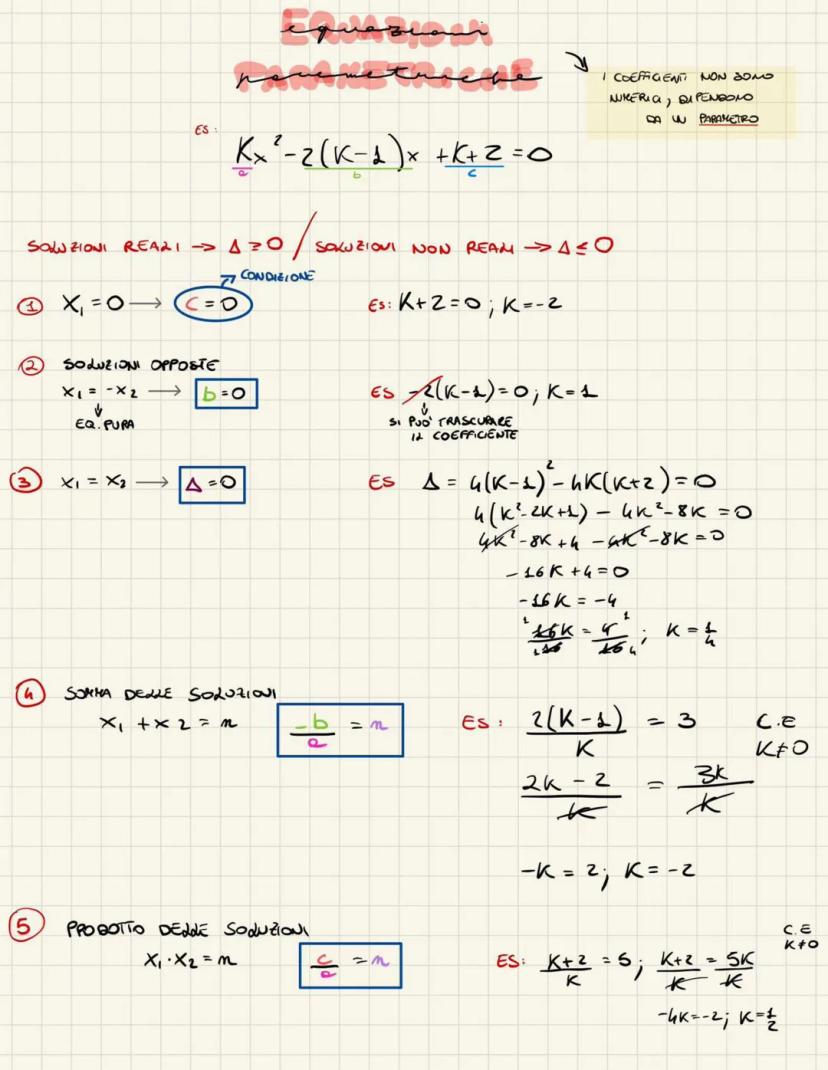 EQUAZIONI
equazioni
PARAMETRICHE
parametriche
I COEFFICIENTI NON SONO
NUMERICI, DIPENDONO
DA UN PARAMETRO
ES:
Kx² - 2(K-1)x + K+2 = 0
a b c
SOLUZIONI REALI → Δ ≥ 0 / SOLUZIONI NON REALI → Δ ≤ 0
CONDIZIONE
① X₁ = 0 → C = 0 ES: K+2 = 0 ; K = -2
② SOLUZIONI OPPOSTE
x₁ = -x₂ → b = 0 ES -2(K-1) = 0 ; K = 1
EQ. PURA SI PUO' TRASCURARE
IL COEFFICIENTE
③ x₁ = x₂ → Δ = 0 ES Δ = 4(K-1)² - 4K(K+2) = 0
4(K²-2K+1) - 4K² - 8K = 0
4K² - 8K + 4 - 4K² - 8K = 0
-16K + 4 = 0
-16K = -4
16K/16 = 4/16 ; K = 1/4
④ SOMMA DELLE SOLUZIONI
x₁ + x2 = n -b/a = n ES: 2(K-1)/K = 3 C.E
K ≠ 0
2K - 2/K = 3K/K
-K = 2 ; K = -2
⑤ PRODOTTO DELLE SOLUZIONI C.E
K ≠ 0
X₁ · X₂ = n c/a = n ES: K+2/K = 5 ; K+2/K = 5K/K
-4K = -2 ; K = 1/2